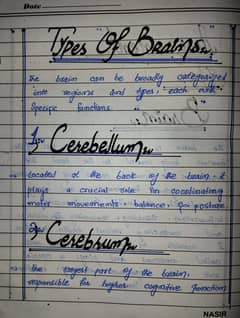 Date
Types Of Brains
the brain can be broadly categorized
into regions and types, each with
Specific functions.
1) Cerebellum
Located at the back of the brain. it
plays a crucial role in cocrdinating
motor movements, balance, & posture
2) Cerebrum
the largest part of the brain,
responsible for higher cognitive function
NASIR